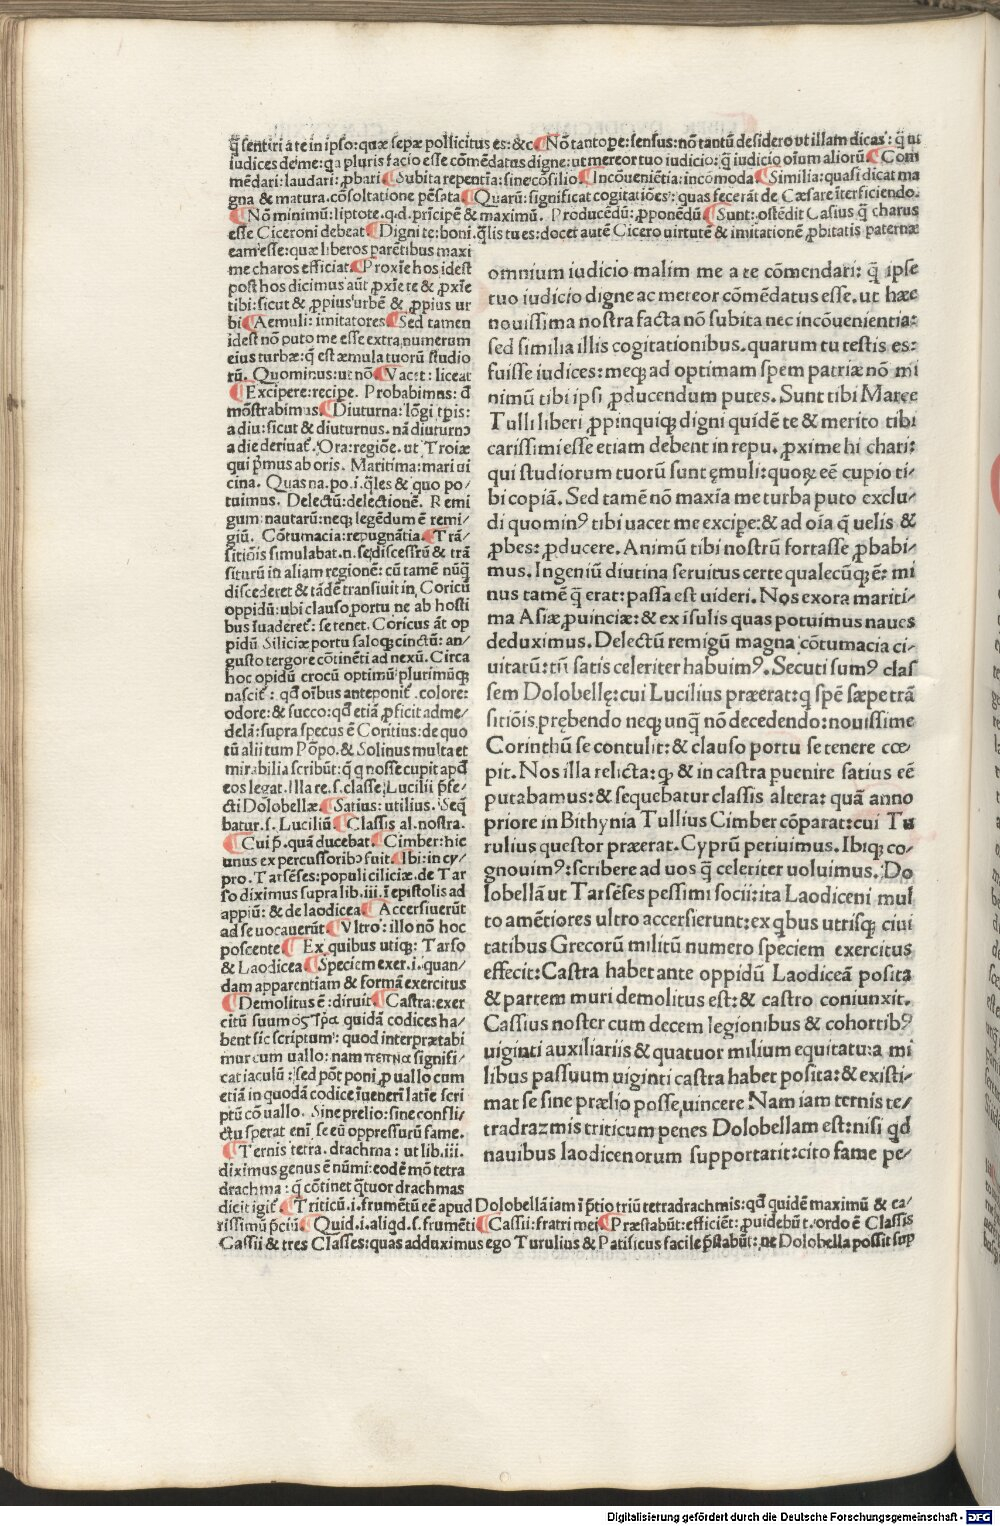 q̃ sentiri a te in ipso: quæ sepæ pollicitus es: &c ¶Nõ tantope: sensus: nõ tantũ desidero ut illam dicas: q̃ ut
iudices de me: q a pluris facio esse cõmẽdatus digne: ut mereor tuo iudicio: q̃ iudicio oĩum aliorũ ¶Com
mẽdari: laudari: ꝓbari ¶Subita repentĩa: sine cõsilio ¶Incõueniẽtia: incõmoda ¶Similia: quasi dicat ma
gna & matura. cõsoltatione pẽsata ¶Quarũ: significat cogitatiões: quas fecerãt de Cæsare ĩterficiendo.
¶Nõ minimũ: liptote. q.d. prĩcipẽ & maximũ. Producẽdũ: ꝓponẽdũ ¶Sunt: ostẽdit Casius q̃ charus
esse Ciceroni debeat ¶Digni te: boni. q̃lis tu es: docet autẽ Cicero uirtutẽ & imitationẽ ꝓbitatis paternæ
eam esse: quæ liberos parẽtibus maxi
me charos efficiat ¶Proxĩe hos idest
post hos dicimus aũt ꝓxĩe te & ꝓxĩe
tibi: sicut & ꝓpius urbẽ & ꝓpius ur
bi ¶Aemuli: imitatores ¶Sed tamen
idest nõ puto me esse extra numerum
eius turbæ: q̃ est æmula tuorũ studio
rũ. Quominus: ut nõ ¶Vacet: liceat
¶Excipere: recipe. Probabimus: d̃
mõstrabimus ¶Diuturna: lõgi tp̃is:
a diu: sicut & diuturnus. nã diuturnɔ
a die deriuat̃. Ora: regiõe. ut Troiæ
qui p̃mus ab oris. Maritima: mari ui
cina. Quas na. po. i. q̃les & quo po-
tuimus. Delectũ: delectionẽ. Remi
gum: nautarũ: neq; legẽdum ẽ remi/
giũ. Cõtumacia: repugnãtia ¶Trã/
sitiõis simulabat. n. se discessurũ & trã
siturũ in aliam regionẽ: cũ tamẽ nũq̃
discederet & tãdẽ transiuit in Coricũ
oppidũ: ubi clauso portu ne ab hosti
bus ĩuaderet̃: se tenet. Coricus ãt op
pidũ Siliciæ portu saloq; cinctũ: an/
gusto tergore cõtinẽti ad nexũ. Circa
hoc opidũ crocũ optimũ plurimũq;
nascit̃: qd̃ oĩbus anteponit̃. colore:
odore: & succo: qd̃ etiã ꝓficit ad me/
delã: supra specus ẽ Coritius: de quo
tũ alii tum Põpo. & Solinus multa et
mirabilia scribũt: q̃ q nosse cupit apd̃
eos legat. Illa re. s. classe Lucilii p̃fe/
cti Dolobellæ. ¶Satius: utilius. Seq̃
batur. s. Luciliũ ¶Classis al. nostra.
¶Cui p̃. quã ducebat ¶Cimber: hic
unus ex percussoribɔ fuit ¶Ibi: in cy/
pro. Tarsẽses: populi ciliciæ. de Tar
so diximus supra lib. iii. ĩ epistolis ad
appiũ: & de laodicea ¶Accersiuerũt
ad se uocauerũt ¶Vltro: illo nõ hoc
poscente ¶Ex quibus utiq;: Tarso
& Laodicea ¶Speciem exer. i. quan/
dam apparentiam & formã exercitus
¶Demolitus ẽ: diruit ¶Castra: exer
citũ suum quidã codices ha/
bent sic scriptum: quod interprætabi
mur cum uallo: nam signifi/
cat iaculũ: sed põt poni ꝓ uallo cum
etiã in quodã codice ĩuenerĩ latĩe scri
ptũ cõ uallo. Sine prelio: sine confli/
ctu sperat enĩ se eũ oppressurũ fame.
¶Ternis tetra. drachma: ut lib. iii.
diximus genus ẽ nũmi: eodẽ mõ tetra
drachma: q̃ cõtinet q̃tuor drachmas
dicit̃ igit̃ ¶Triticũ. i. frumẽtũ eẽ apud Dolobellã iam ĩ p̃tio triũ tetradrachmis: qd̃ quidẽ maximũ & ca/
rissimũ p̃ciũ ¶Quid. i. aliqd. s. frumẽti ¶Cassii: fratri mei ¶Præstabũt: efficiẽt: ꝓuidebũt. ordo ẽ Classis
Cassii & tres Classes: quas adduximus ego Turulius & Patisicus facile p̃stabũt: ne Dolobella possit sup
omnium iudicio malim me a te cõmendari: q̃ ipse
tuo iudicio digne ac mereor cõmẽdatus esse. ut hæc
nouissima nostra facta nõ subita nec incõuenientia:
sed similia illis cogitationibus. quarum tu testis es:
fuisse iudices: meq; ad optimam spem patriæ nõ mi
nimũ tibi ipsi ꝓducendum putes. Sunt tibi Marce
Tulli liberi ꝓpinquiq; digni quidẽ te & merito tibi
carissimi esse etiam debent in repu. ꝓxime hi chari:
qui studiorum tuorũ sunt ęmuli: quoꝝ eẽ cupio ti-
bi copiã. Sed tamẽ nõ maxĩa me turba puto exclu/
di quominꝰ tibi uacet me excipe: & ad oĩa q̃ uelis &
ꝓbes: ꝓducere. Animũ tibi nostrũ fortasse ꝓbabi-
mus. Ingeniũ diutina seruitus certe qualecũq; ẽ: mi
nus tamẽ q̃ erat: passa est uideri. Nos exora mariti/
ma Asiæ ꝓuinciæ: & ex ĩsulis quas potuimus naues
deduximus. Delectũ remigũ magna cõtumacia ci/
uitatũ: tñ satis celeriter habuimꝰ. Secuti sumꝰ clas
sem Dolobellę: cui Lucilius præerat: q spẽ sæpe trã
sitiõis prębendo neq; unq̃ nõ decedendo: nouissime
Corinthũ se contulit: & clauso portu se tenere cœ-
pit. Nos illa relicta: q; & in castra puenire satius eẽ
putabamus: & sequebatur classis altera: quã anno
priore in Bithynia Tullius Cimber cõparat: cui Tu
rulius questor præerat. Cyprũ petiuimus. Ibiq; co-
gnouimꝰ: scribere ad uos q̃ celeriter uoluimus. Do
lobellã ut Tarsẽses pessimi socii: ita Laodiceni mul
to amẽtiores ultro accersierunt: ex qbus utrisq; ciui
tatibus Grecorũ militũ numero speciem exercitus
effecit: Castra habet ante oppidũ Laodiceã posita
& partem muri demolitus est: & castro coniunxit.
Cassius noster cum decem legionibus & cohortibꝰ
uiginti auxiliariis & quatuor milium equitatu: a mi
libus passuum uiginti castra habet posita: & existi/
mat se sine prælio posse uincere Nam iam ternis te/
tradrazmis triticum penes Dolobellam est: nisi qd
nauibus laodicenorum supportarit: cito fame pe/
Digitalisierung gefördert durch die Deutsche Forschungsgemeinschaft - DFG